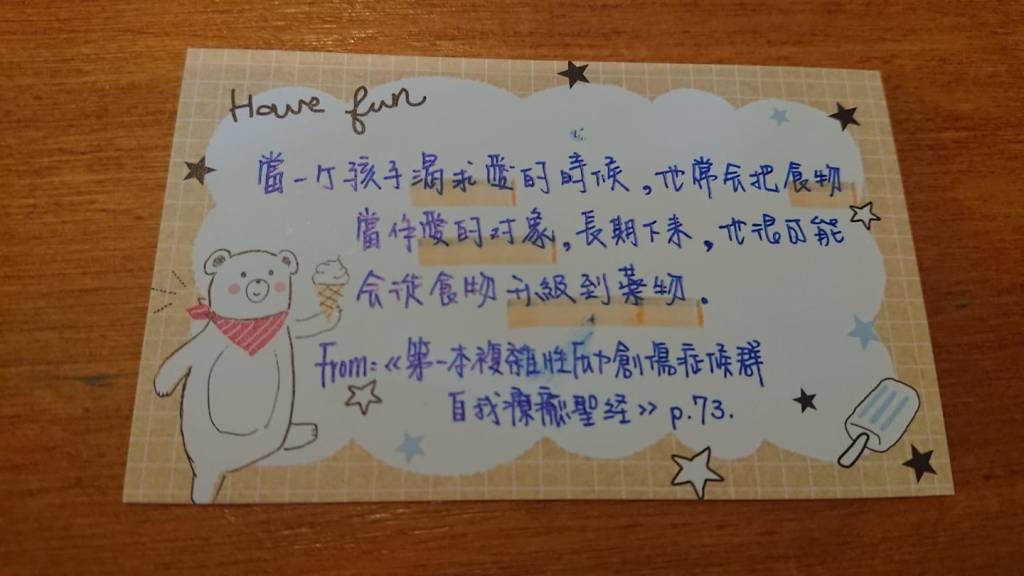 Have fun
當一个孩子渴求愛的時候,也常会把食物
當作愛的对象,長期下来,也很可能
会從食物升級到藥物。
From:《第一本複雜性PTSD創傷症候群
自我療癒聖经》p.73.